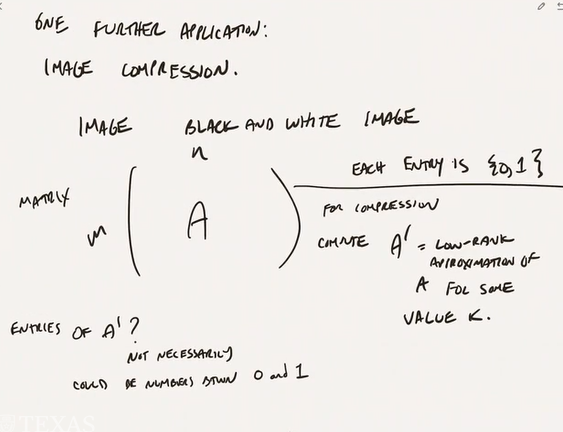 ONE FURTHER APPLICATION:
IMAGE COMPRESSION.
IMAGE BLACK AND WHITE IMAGE
n
EACH ENTRY IS {0,1}
MATRIX
m
A
FOR COMPRESSION
COMPUTE A' = LOW-RANK
APPROXIMATION OF
A FOR SOME
VALUE K.
ENTRIES OF A'?
NOT NECESSARILY
COULD BE NUMBERS BTWN 0 and 1
TEXAS